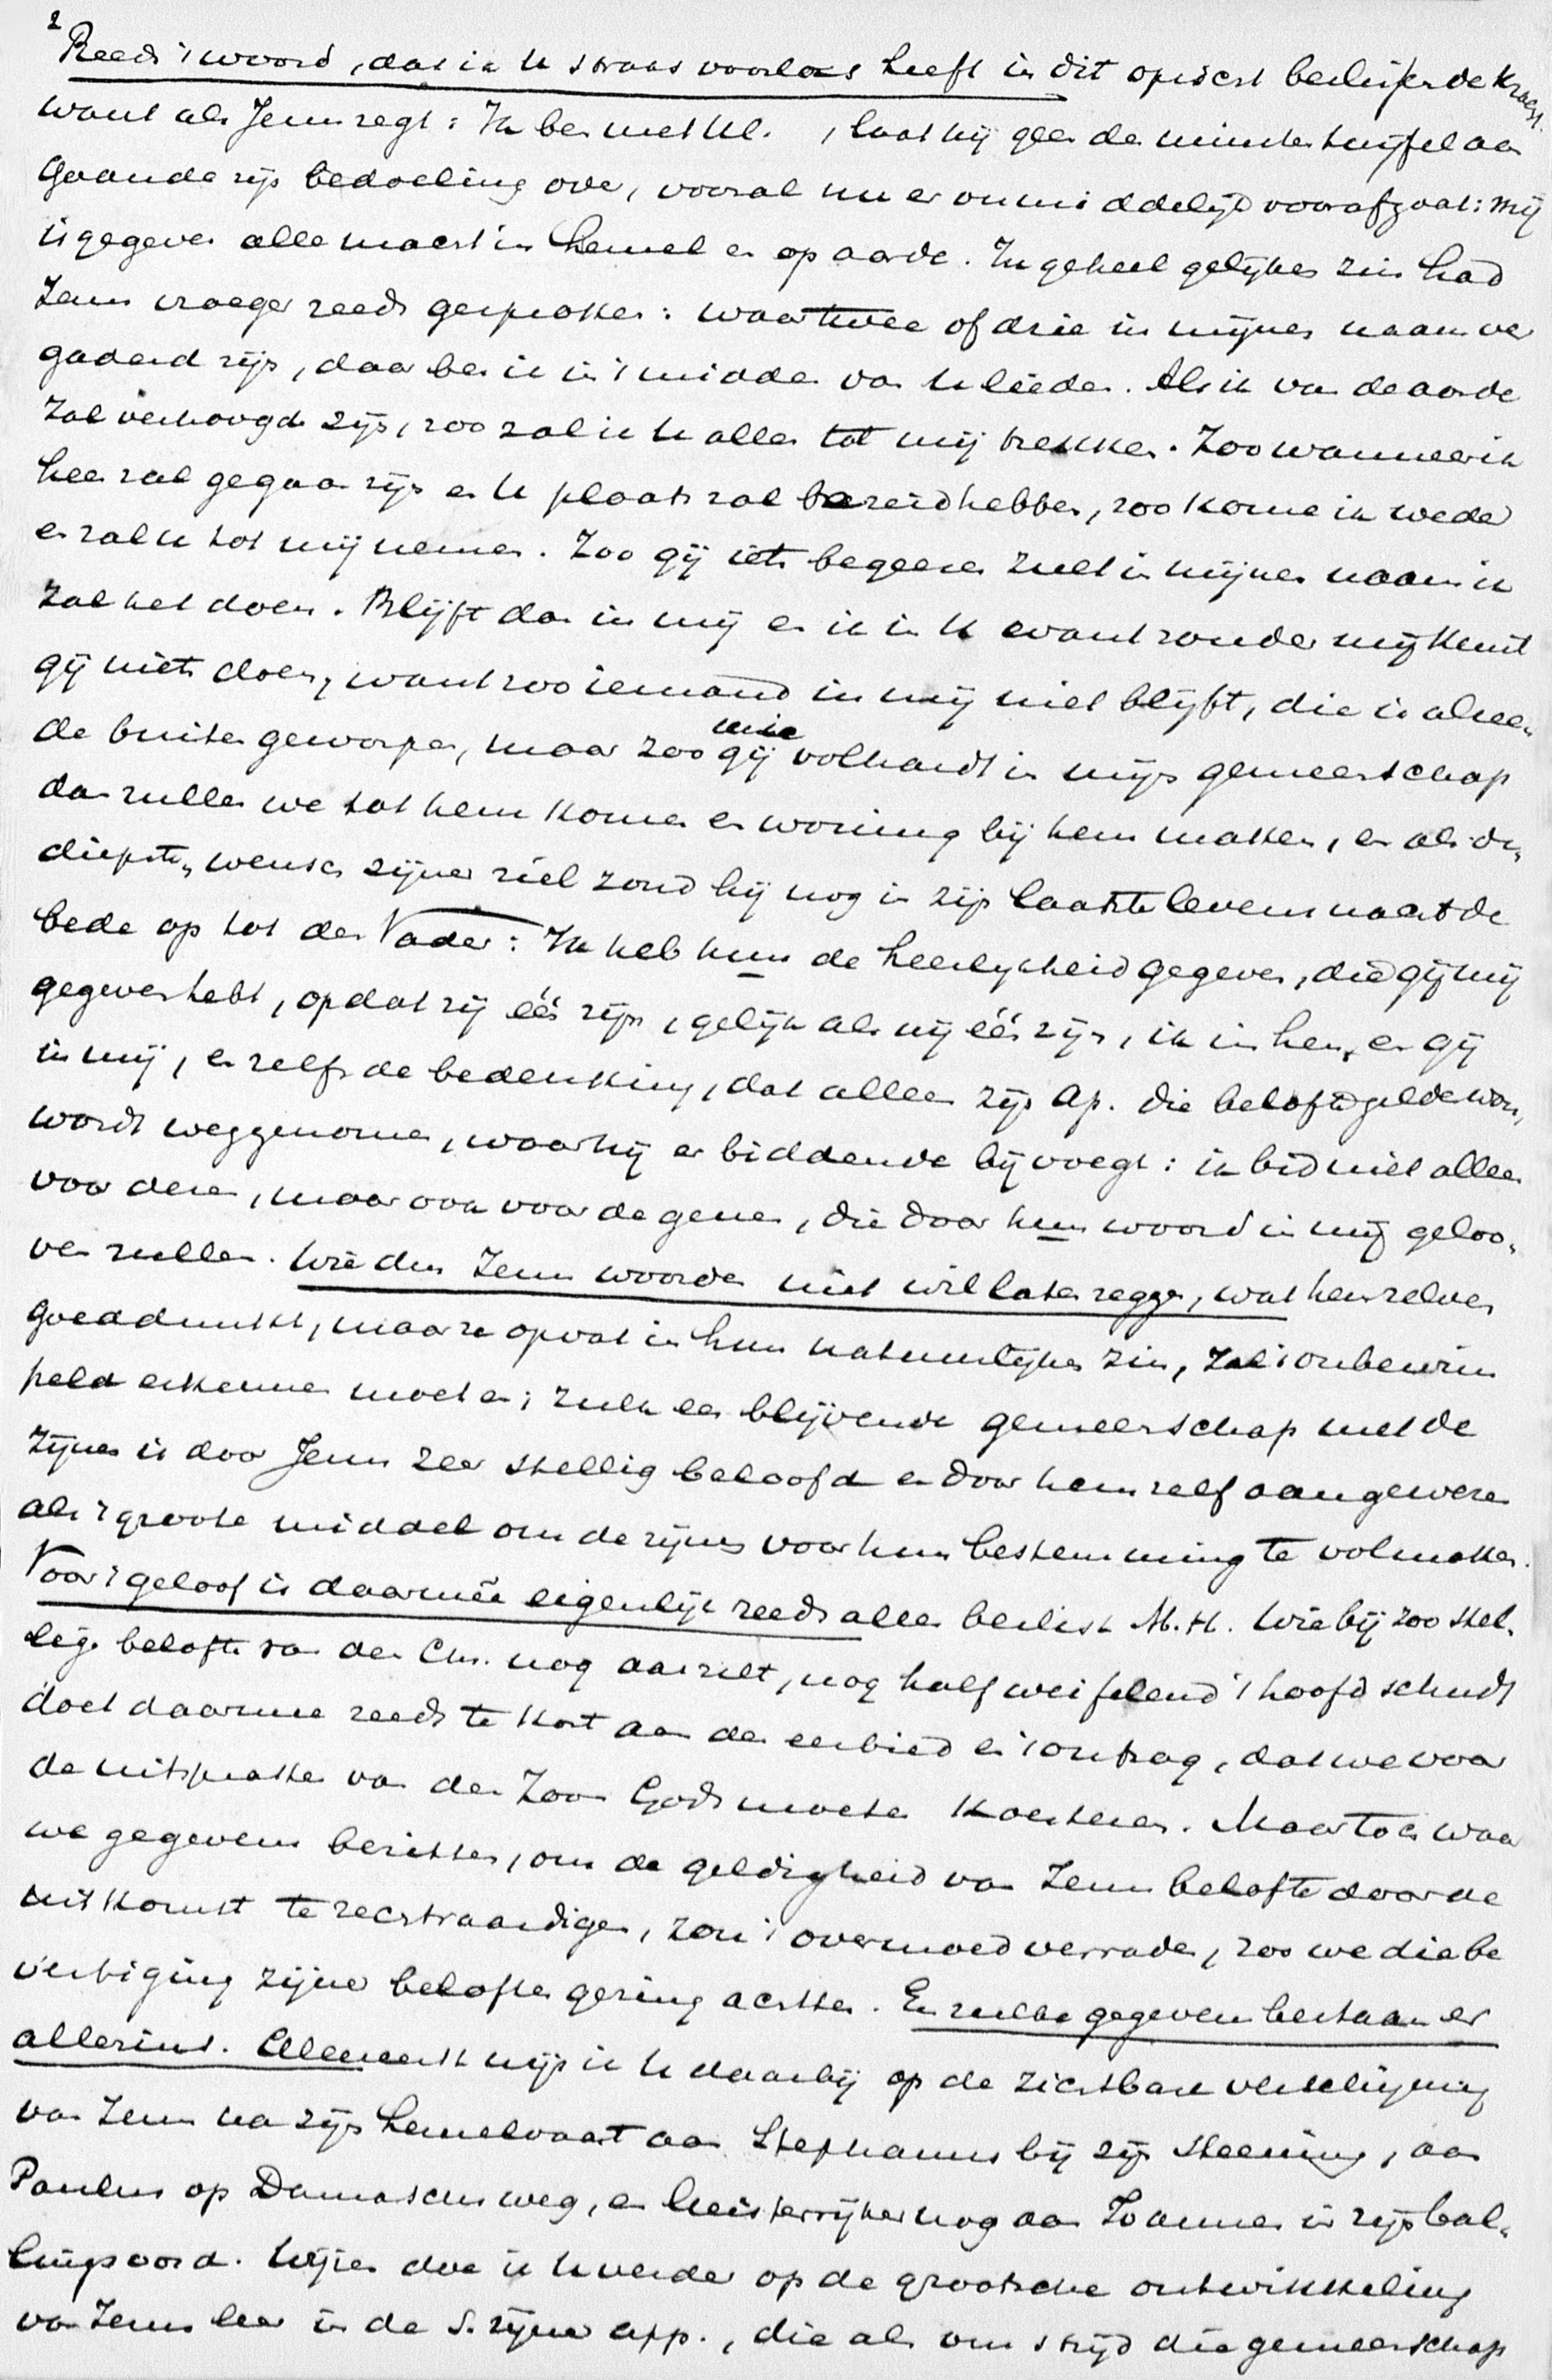 2
Reeds 't woord, dat ik U straks voorlas heeft in dit opzicht beslissende kracht.
want als Jezus zegt: Ik ben met Ul. , laat hij geen de minste twijfel aan
gaande zijn bedoeling over, vooral nu er onmiddelijk voorafgaat: mij
is gegeven alle macht in hemel en op aarde. In geheel gelijken zin had
Jezus vroeger reeds gesproken: waar twee of drie in mijnen naam ver
gaderd zijn, daar ben ik in 't midden van Ulieden. Als ik van de aarde
zal verhoogd zijn, zoo zal ik U allen tot mij trekken. Zoo wanneer ik
heen zal gegaan zijn en U plaats zal bereid hebben, zoo kome ik weder
en zal U tot mij nemen. Zoo gij iets begeeren zult in mijnen naam ik
zal het doen. Blijft dan in mij en ik in U want zonder mij kunt
gij niets doen, want zoo iemand in mij niet blijft, die is alreen
de buiten geworpen, maar zoo gij volhardt in mijn gemeenschap
wie
dan zullen we tot hem komen en woning bij hem maken, en als den
diepsten wensch zijner ziel zond hij nog in zijn laatste levensnacht de
bede op tot den Vader: Ik heb hun de heerlijkheid gegeven, die gij mij
gegeven hebt, opdat zij één zijn, gelijk als wij één zijn, ik in hen, en gij
in mij, en zelfs de bedenking, dat alleen zijn Ap. die belofte gelden zou,
wordt weggenomen, waar hij er biddende bij voegt: ik bid niet alleen
voor dezen, maar ook voor de genen, die door hun woord in mij geloo-
ven zullen. Wie dus Jezus woorden niet wil laten zeggen, wat hem zelven
goeddunkt, maar ze opvat in hun natuurlijken zin, zal 't onbewim
peld erkennen moeten; zulk een blijvende gemeenschap met de
zijnen is door Jezus zeer stellig beloofd en door hem zelf aangewezen
als 't groote middel om de zijnen voor hun bestemming te volmaken.
Voor 't geloof is daarmeê eigenlijk reeds alles beslist M.H. Wie bij zoo stel-
lige belofte van den Chr. nog aarzelt, nog half weifelend 't hoofd schudt
doet daarmee reeds te kort aan den eerbied en 't ontzag, dat we voor
de uitspraken van den Zoon Gods moeten koesteren. Maar toch waar
we gegevens bezitten, om de geldigheid van Jezus belofte door de
uitkomst te rechtvaardigen, zou 't overmoed verraden, zoo we die be
vestiging zijner beloften gering achtten. En zulke gegevens bestaan er
allerzins. Allereerst wijs ik U daarbij op de zichtbare verschijning
van Jezus na zijn hemelvaart aan Stephanus bij zijn steening, aan
Paulus op Damascus weg, en luisterrijker nog aan Joannes in zijn bal-
lingsoord. Wijzen doe ik U verder op de grootsche ontwikkeling
van Jezus leer in de S. zijner app., die als om strijd die gemeenschap